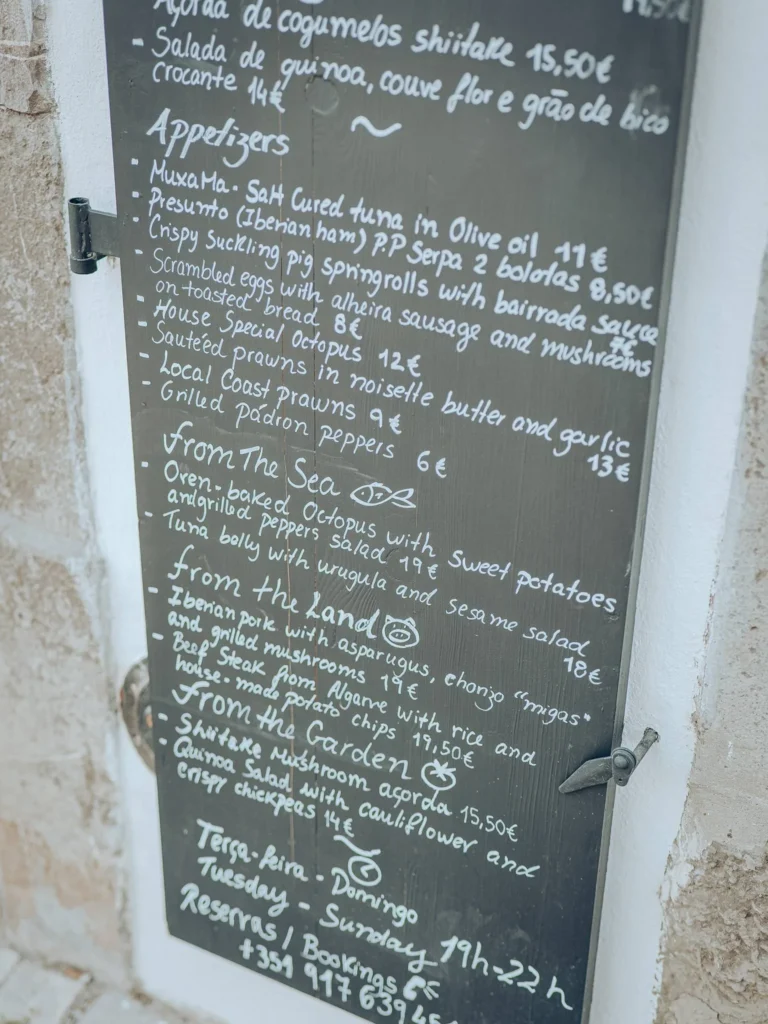 Açorda de cogumelos shiitake 15,50€
- Salada de quinoa, couve flor e grão de bico
crocante 14€
~
Appetizers
- MuxaMa. Salt Cured tuna in Olive oil 11€
- Presunto (Iberian ham) P.P Serpa 2 bolotas 8,50€
- Crispy Suckling pig springrolls with bairrada sauce
7€
- Scrambled eggs with alheira sausage and mushrooms
on toasted bread 8€
- House Special Octopus 12€
- Sauteéd prawns in noisette butter and garlic
13€
- Local Coast prawns 9€
- Grilled pádron peppers 6€
from The Sea
- Oven-baked Octopus with Sweet potatoes
and grilled peppers salad 19€
- Tuna belly with urugula and sesame salad
18€
from the Land
- Iberian pork with asparugus, chorizo "migas"
and grilled mushrooms 19€
- Beef Steak from Algarve with rice and
house-made potato chips 19,50€
from the Garden
- Shiitake Mushroom açorda 15,50€
- Quinoa Salad with cauliflower and
crispy chickpeas 14€
Terça-feira - Domingo
Tuesday - Sunday 19h-22h
Reservas / Bookings
+351 917 639